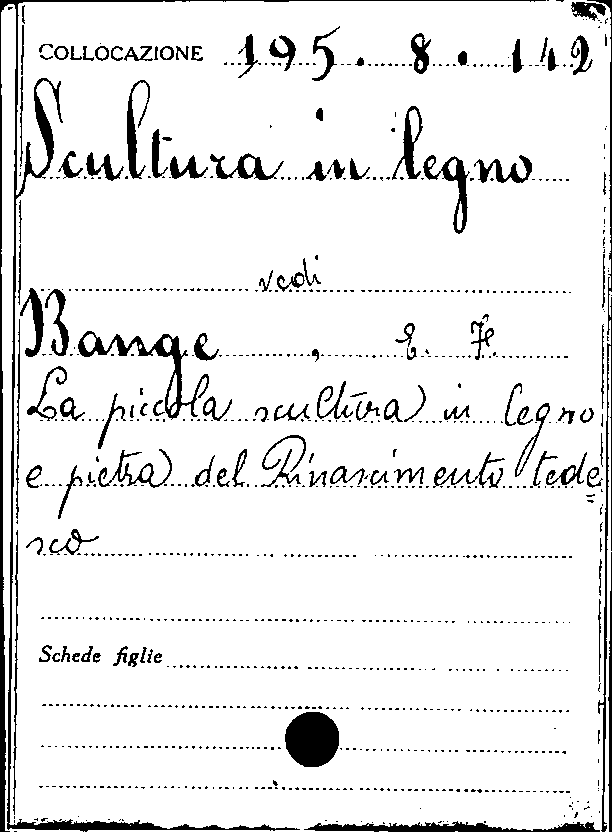 COLLOCAZIONE 195. 8. 142
Scultura in legno
vedi
Bange, E. F.
La piccola scultura in legno
e pietra del Rinascimento tede
sco
Schede figlie